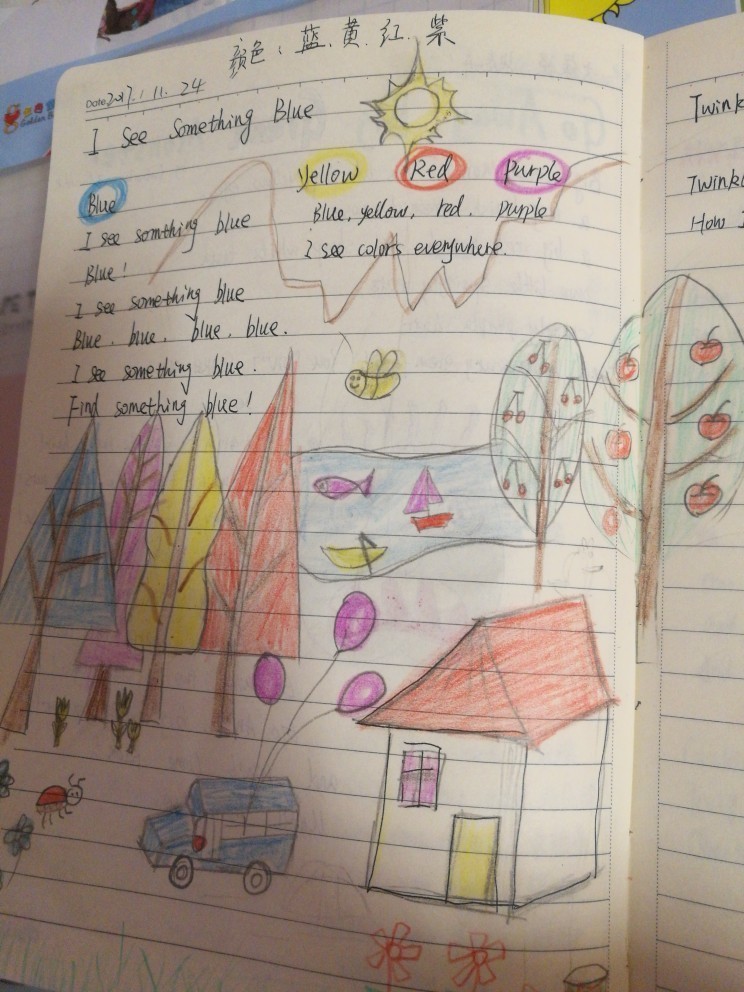 颜色：蓝.黄.红.紫
Date 2017.11.24
I See Something Blue
Blue
I see somthing blue
Blue!
I see something blue
Blue. blue. blue. blue.
I see something blue.
Find something blue!
Yellow Red Purple
Blue, yellow, red. purple
I see colors everywhere.
Twink
Twinkl
How I